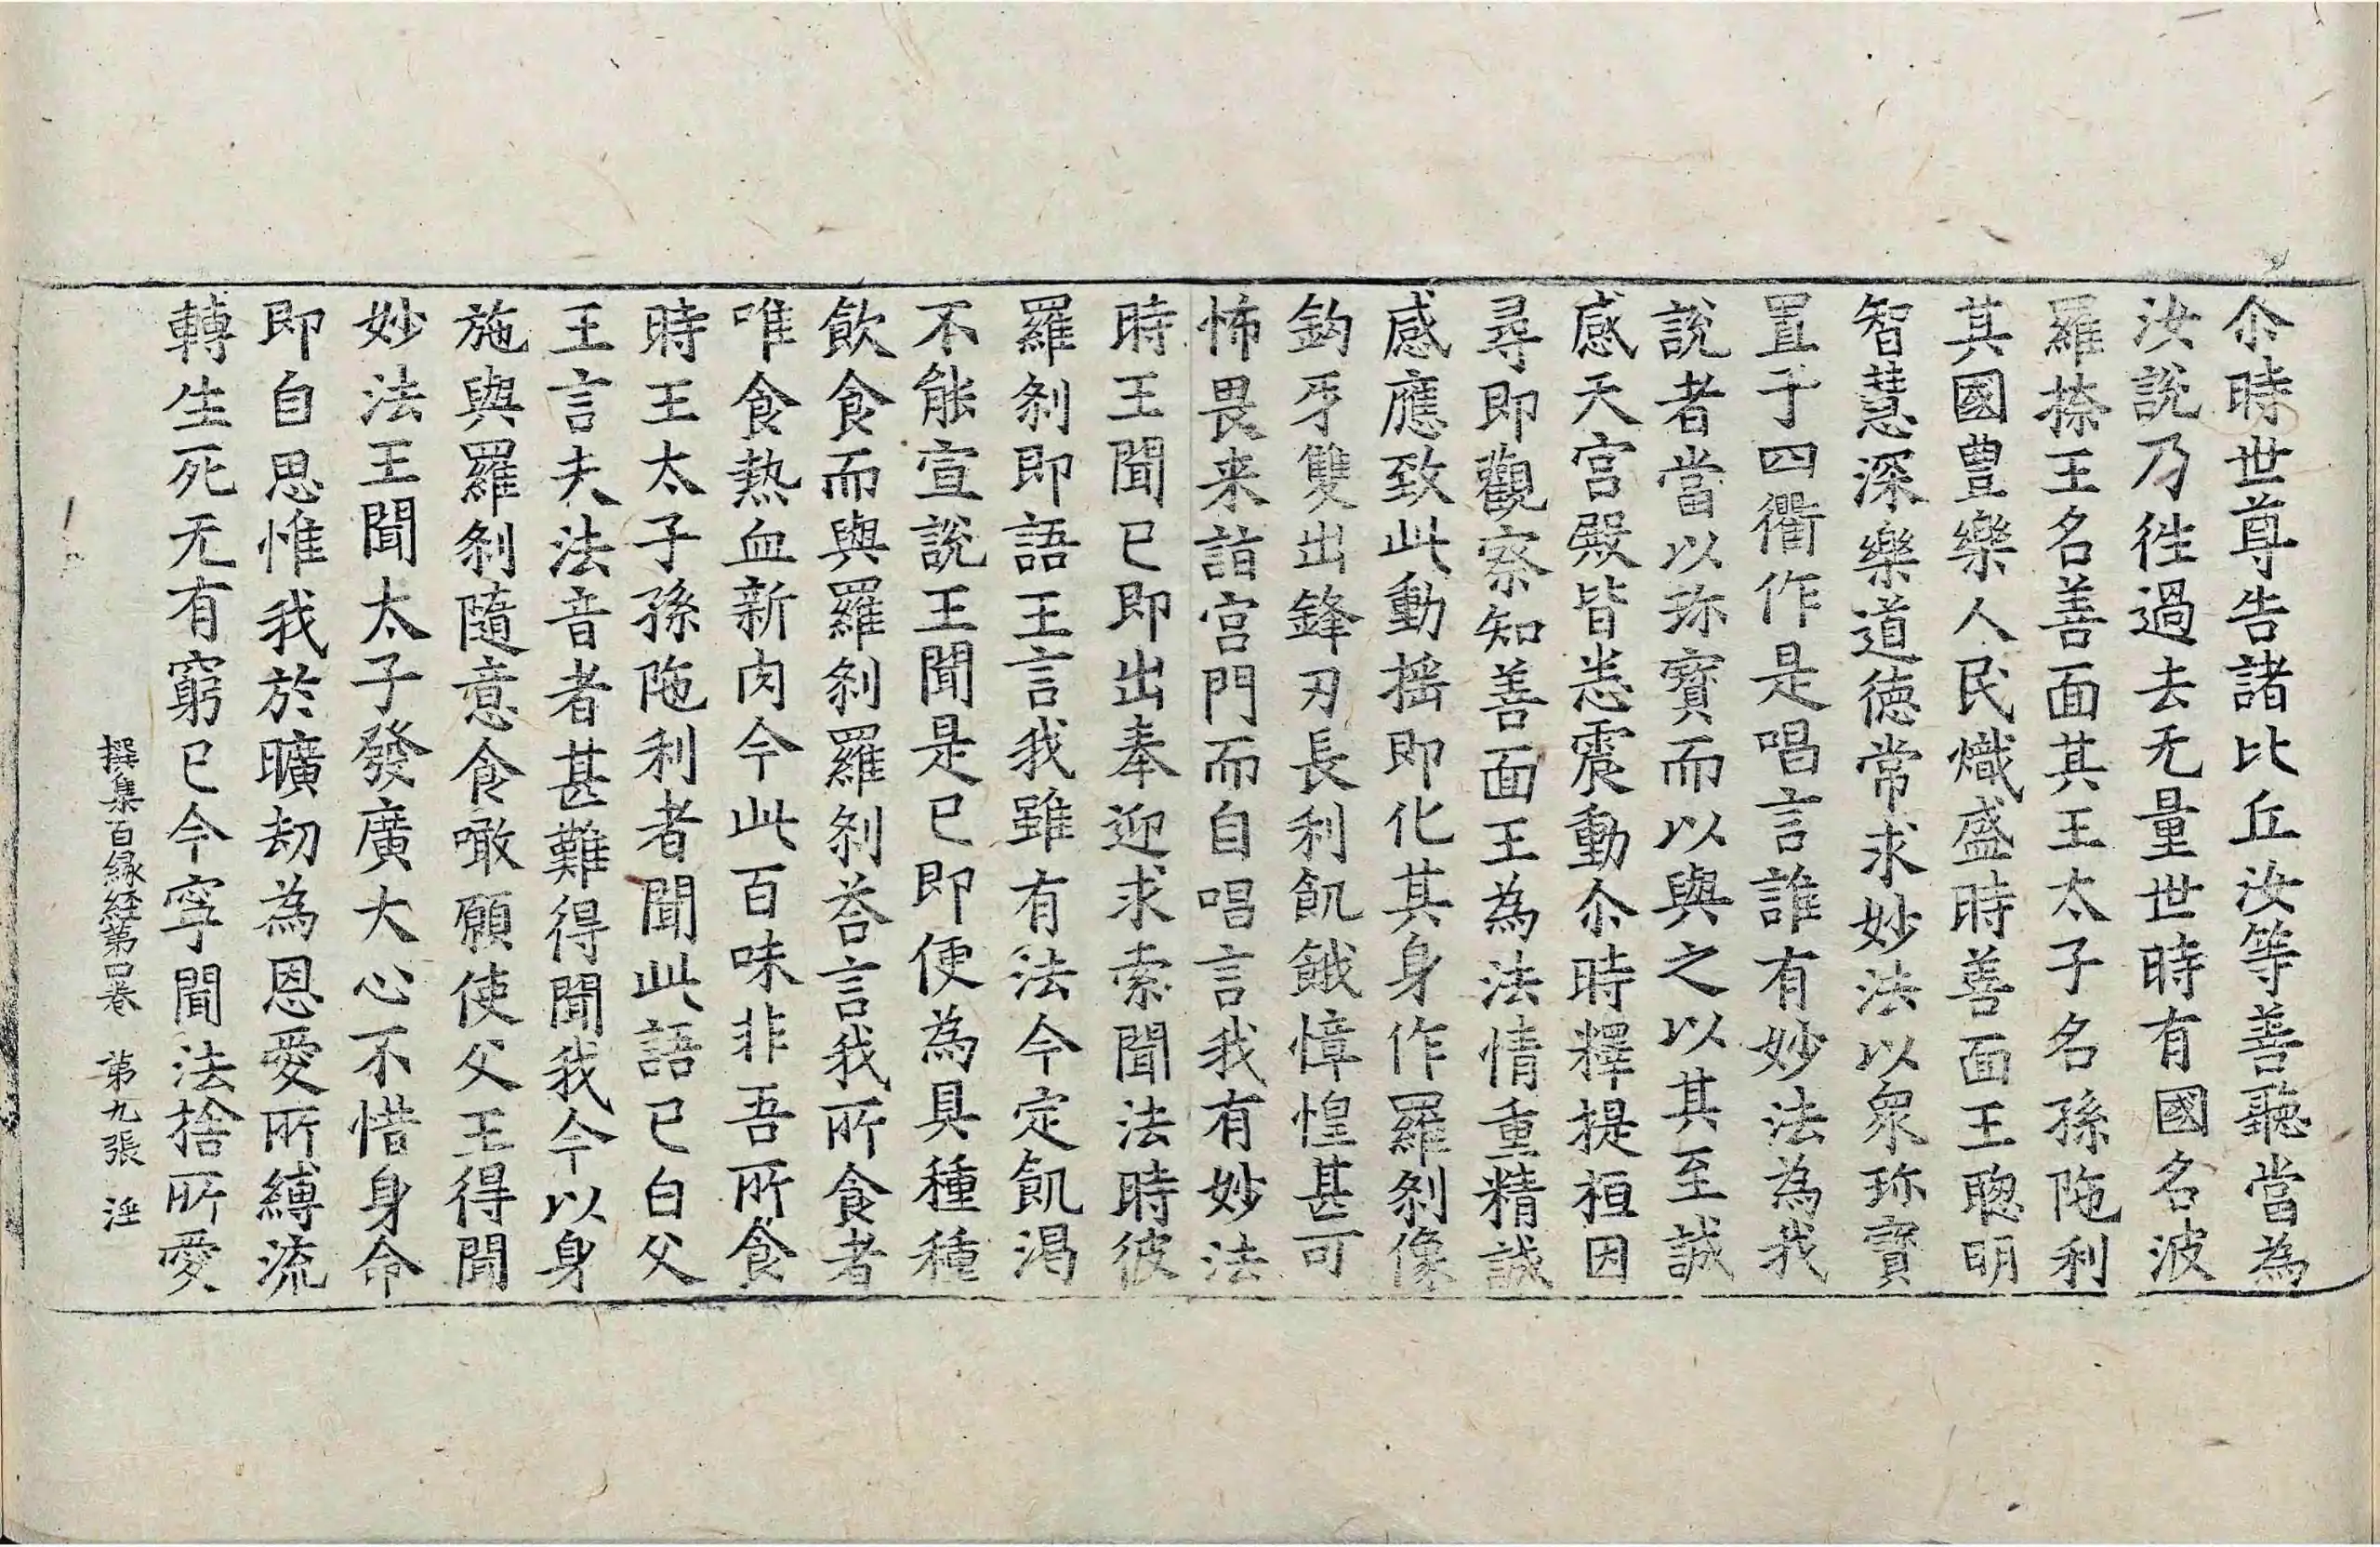 尒時世尊告諸比丘汝等善聽當為
汝說乃徃過去无量世時有國名波
羅捺王名善面其王太子名孫陁利
其國豊樂人民熾盛時善面王聦明
智慧深樂道德常求妙法以衆珎寶
置于四衢作是唱言誰有妙法為我
說者當以珎寶而以與之以其至誠
感天宫殿皆悉震動尒時釋提桓因
尋即觀察知善面王為法情重精誠
感應致此動揺即化其身作羅刹像
鈎牙雙出鋒刃長利飢餓慞惶甚可
怖畏来詣宫門而自唱言我有妙法
時王聞已即出奉迎求索聞法時彼
羅刹即語王言我雖有法今定飢渇
不能宣說王聞是已即便為具種種
飲食而與羅刹羅刹荅言我所食者
唯食熱血新肉今此百味非吾所食
時王太子孫陁利者聞此語已白父
王言夫法音者甚難得聞我今以身
施與羅刹隨意食噉願使父王得聞
妙法王聞太子發廣大心不惜身命
即自思惟我於曠劫為恩愛所縛流
轉生死无有窮已今寜聞法捨所愛
撰集百縁經第四卷 第九張 淫